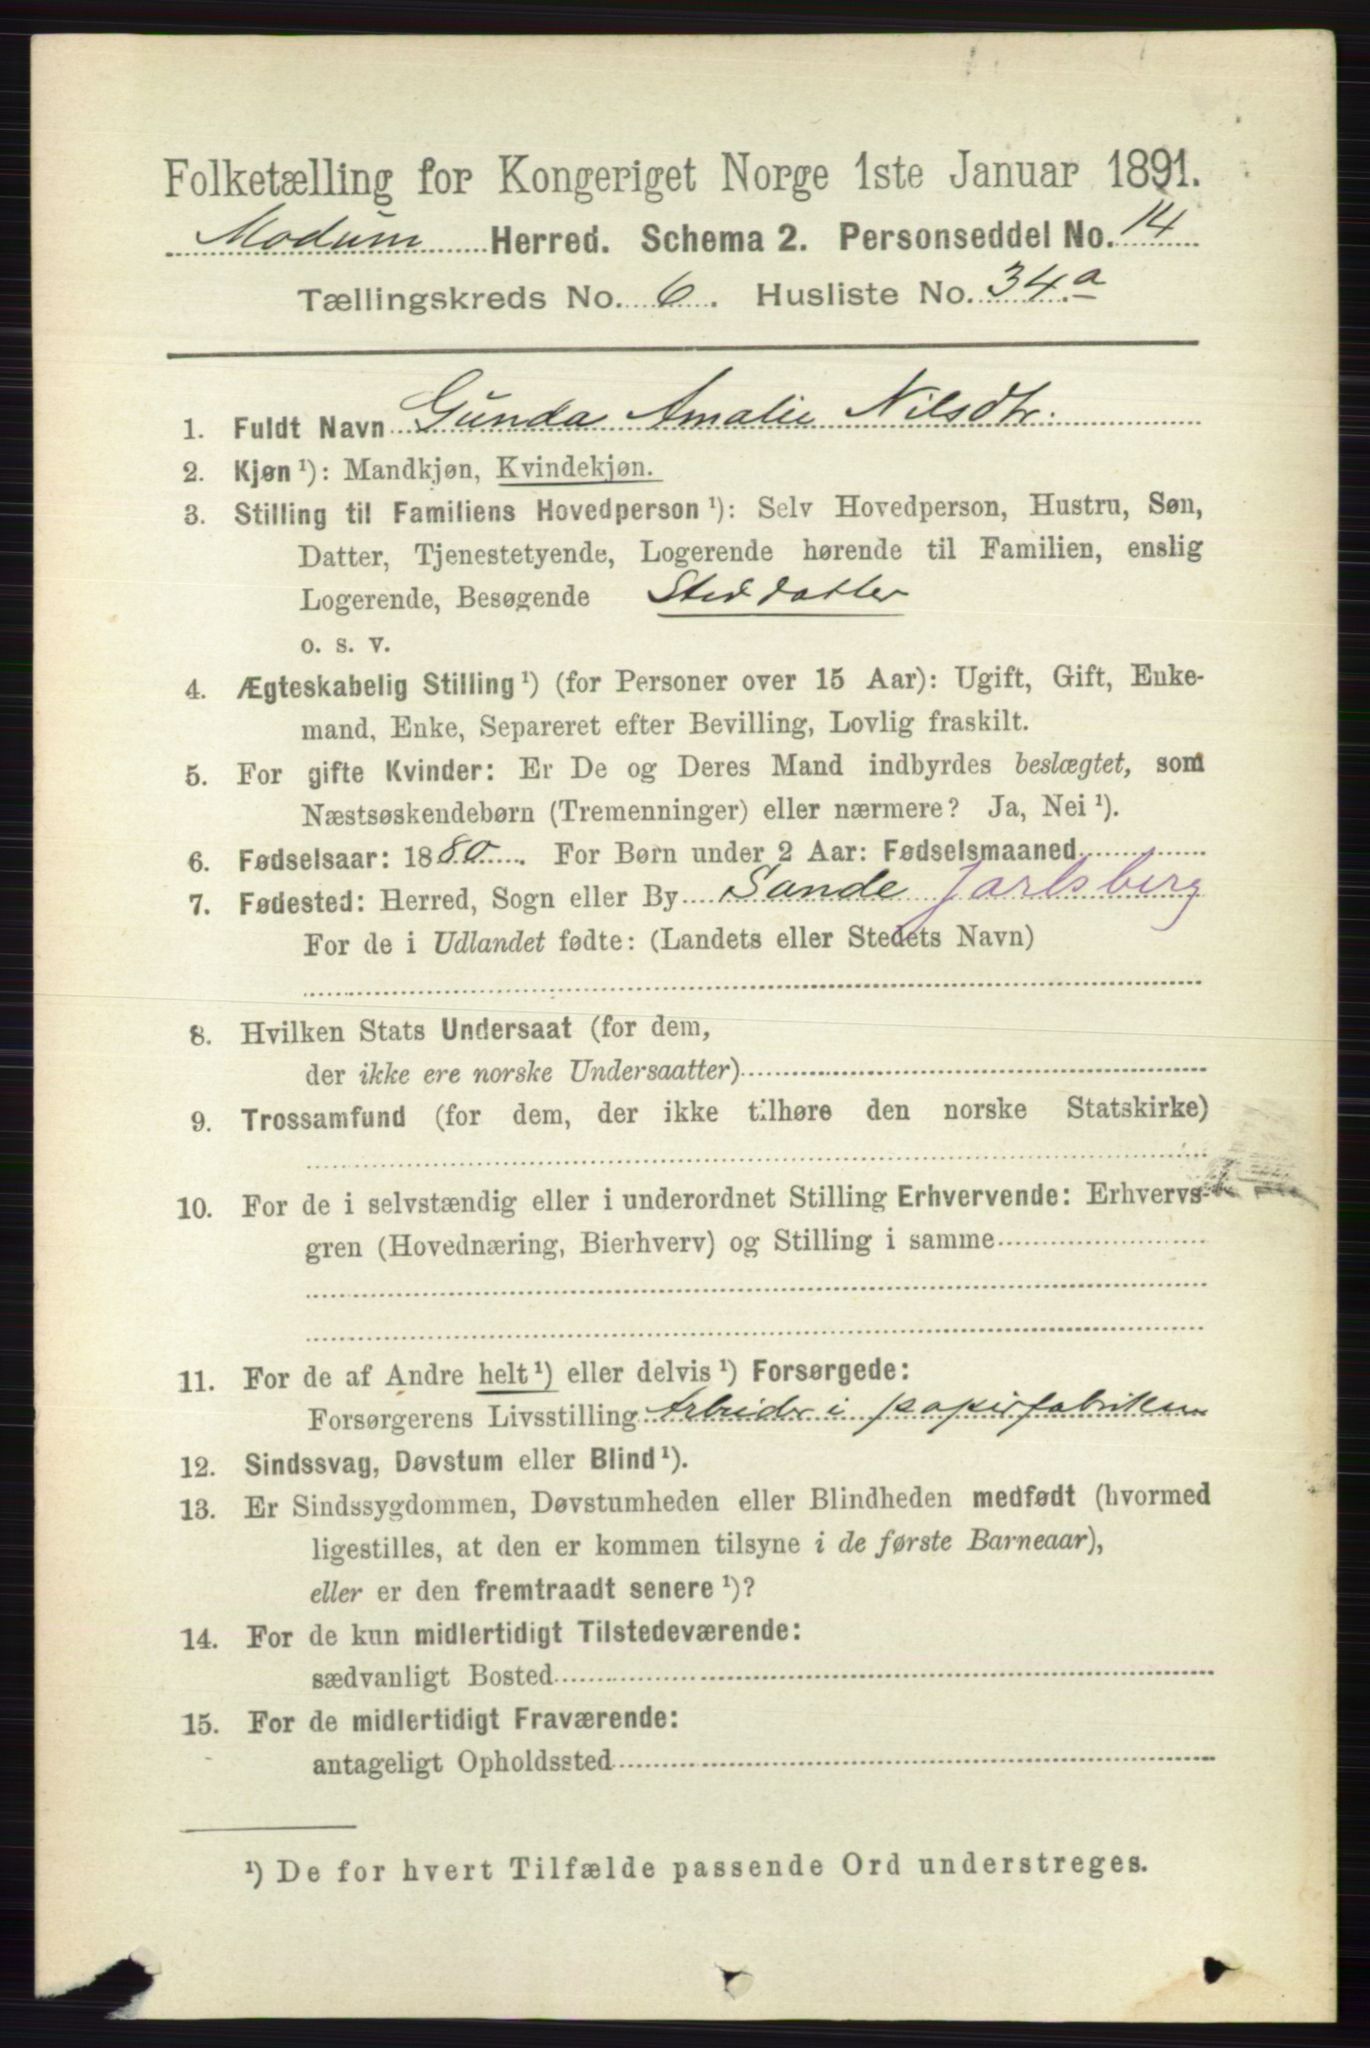 Folketælling for Kongeriget Norge 1ste Januar 1891.
Modum Herred. Schema 2. Personseddel No. 14
Tællingskreds No. 6. Husliste No. 34.a
1. Fuldt Navn Gunda Amalie Nilsdtr.
2. Kjøn ¹): Mandkjøn, Kvindekjøn.
3. Stilling til Familiens Hovedperson ¹): Selv Hovedperson, Hustru, Søn,
Datter, Tjenestetyende, Logerende hørende til Familien, enslig
Logerende, Besøgende Steddatter
o. s. v.
4. Ægteskabelig Stilling ¹) (for Personer over 15 Aar): Ugift, Gift, Enke-
mand, Enke, Separeret efter Bevilling, Lovlig fraskilt.
5. For gifte Kvinder: Er De og Deres Mand indbyrdes beslægtet, som
Næstsøskendebørn (Tremenninger) eller nærmere? Ja, Nei ¹).
6. Fødselsaar: 1880. For Børn under 2 Aar: Fødselsmaaned
7. Fødested: Herred, Sogn eller By Sande Jarlsberg
For de i Udlandet fødte: (Landets eller Stedets Navn)
8. Hvilken Stats Undersaat (for dem,
der ikke ere norske Undersaatter)
9. Trossamfund (for dem, der ikke tilhøre den norske Statskirke)
10. For de i selvstændig eller i underordnet Stilling Erhvervende: Erhvervs-
gren (Hovednæring, Bierhverv) og Stilling i samme
11. For de af Andre helt ¹) eller delvis ¹) Forsørgede:
Forsørgerens Livsstilling Arbeider i papirfabriken
12. Sindssvag, Døvstum eller Blind ¹).
13. Er Sindssygdommen, Døvstumheden eller Blindheden medfødt (hvormed
ligestilles, at den er kommen tilsyne i de første Barneaar),
eller er den fremtraadt senere ¹)?
14. For de kun midlertidigt Tilstedeværende:
sædvanligt Bosted
15. For de midlertidigt Fraværende:
antageligt Opholdssted
¹) De for hvert Tilfælde passende Ord understreges.